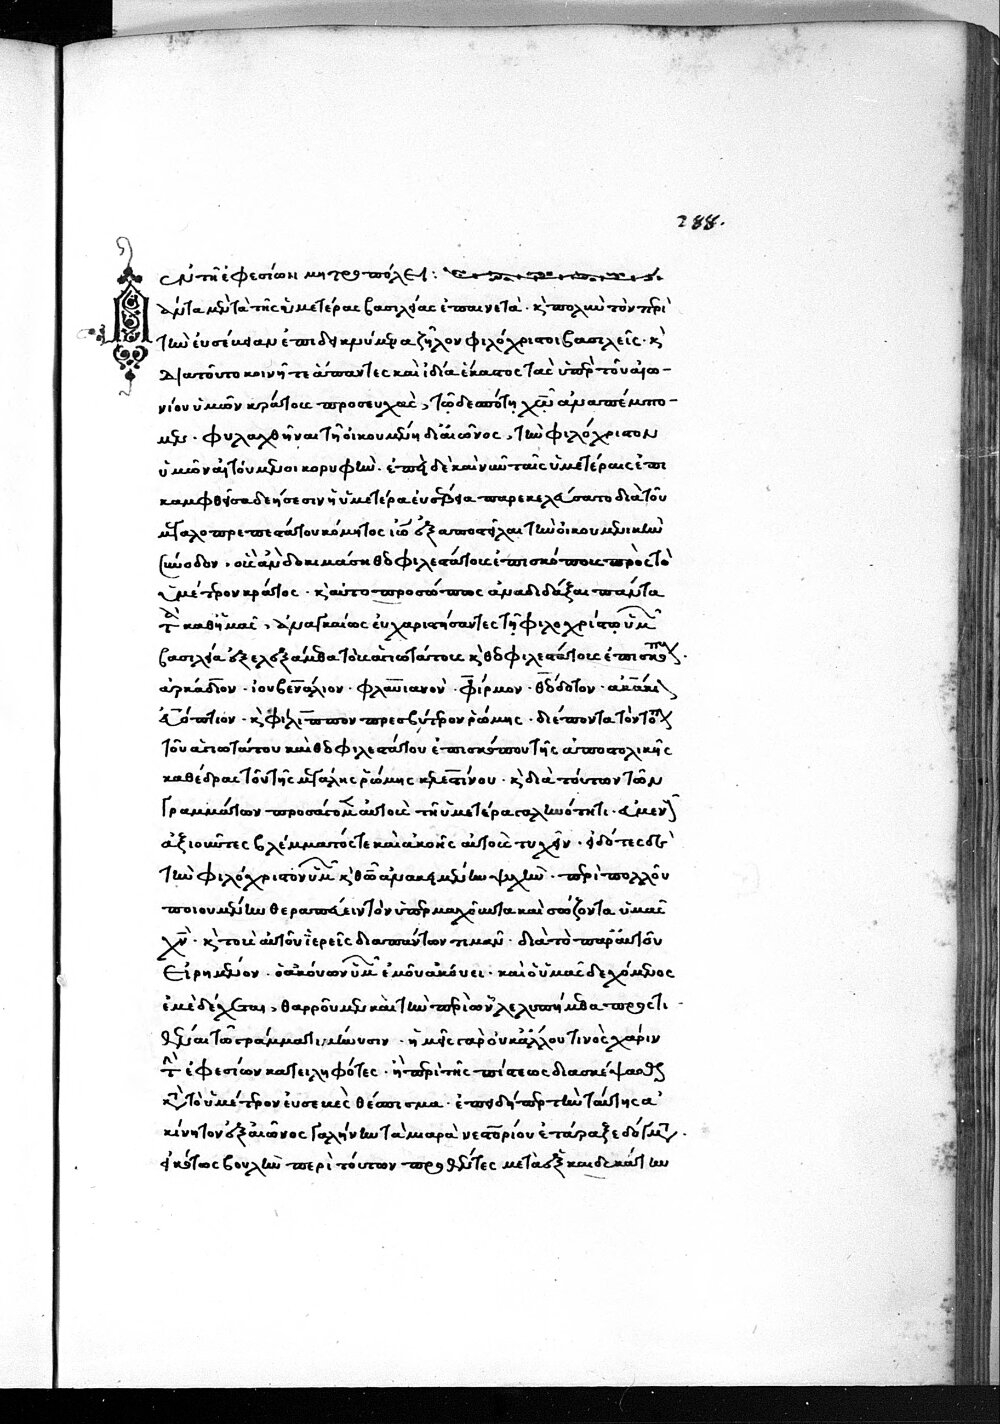 288.
ἐν τῇ ἐφεσίων μητροπόλει:
Πάντα μὲν τὰ τῆς ὑμετέρας βασιλείας ἐπαινετά· κ(αὶ) πολὺν τὸν περὶ
τὴν εὐσέβειαν ἐπιδεικνύμενα ζῆλον φιλόχριστοι βασιλεῖς· κ(αὶ)
διατοῦτο κοινῇ τε ἅπαντες καὶ ἰδία ἕκαστος τὰς ὑπὲρ τοῦ αἰω-
νίου ὑμῶν κράτους προσευχὰς, τῶ δεσπότη χ(ριστ)ῶ ἀναπέμπο-
μεν· φυλαχθῆναι τῆ οἰκουμένη διαιῶνος, τὴν φιλόχριστον
ὑμῶν αἰτούμενοι κορυφὴν. ἐπεὶ δὲ καὶ νῦν ταῖς ὑμετέραις ἐπι
καμφθεῖσα δεήσεσιν ἡ ὑμετέρα εὐσέβεια παρεκελεύσατο διὰ τοῦ
μεγαλοπρεπεστάτου κόμητος ἰω(άννου) ἐξαποστεῖλαι τὴν οἰκουμενικὴν
σύνοδον, οὓς ἂν δοκιμάση θεοφιλεστάτους ἐπισκόπους πρὸς τὸ
ὑμέτερον κράτος· κ(αὶ) αὐτοπροσώπως ἀναδιδάξαι πάντα
τὰ καθ' ἡμᾶς, ἀναγκαίως εὐχαριστήσαντες τῆ φιλοχρίστω ὑμῶν
βασιλεία ἐξελεξάμεθα τοὺς ἁγιωτάτους κ(αὶ) θεοφιλεστάτους ἐπισκόπους·
ἀρκάδιον· ἰουβενάλιον· φλαυιανόν· φίρμον· θεόδοτον· ἀκάκιον
εὐόπτιον· κ(αὶ) φίλιππον πρεσβύτερον ῥώμης· διέποντα τὸν τόπον
τοῦ ἁγιωτάτου καὶ θεοφιλεστάτου ἐπισκόπου τῆς ἀποστολικῆς
καθέδρας τοῦ τῆς μεγάλης ῥώμης κελεστίνου· κ(αὶ) διὰ τούτων τῶν
γραμμάτων προσάγομεν αὐτοὺς τῆ ὑμετέρα γαληνότητι· εὐμενοῦς
ἀξιοῦντες βλέμματός τε καὶ ἀκοῆς αὐτοὺς τυχεῖν· εἰδότες
τὴν φιλόχριστον ὑμῶν κ(αὶ) θ(ε)ῶ ἀνακειμένην ψυχὴν· περὶ πολλοῦ
ποιουμένην θεραπεύειν τὸν ὑπερμαχοῦντα καὶ σώζοντα ὑμᾶς
χ(ριστὸ)ν· κ(αὶ) τοὺς αὐτοῦ ἱερεῖς διαπάντων τιμᾶν· διὰ τὸ παρ' αὐτοῦ
εἰρημένον· ὁ ἀκούων ὑμῶν ἐμοῦ ἀκούει· καὶ ὁ ὑμᾶς δεχόμενος
ἐμὲ δέχεται, θαρροῦμεν καὶ τὴν περὶ ὧν λελυπήμεθα προστι
θέναι τῶ γράμματι μήνυσιν· ἡμεῖς γὰρ οὐκ ἄλλου τινὸς χάριν
τὴν ἐφεσίων κατειληφότες· ἢ περὶ τῆς πίστεως διασκέψασθαι
κατὰ τὸ ὑμέτερον εὐσεβὲς θέσπισμα· ἐπειδήπερ τὴν ταύτης ἀ
κίνητον ἐξαιῶνος γαλήνην τὰ μιαρὰ νεστορίου ἐτάραξε δόγματα·
εἰκότως βουλὴν περὶ τούτων προθέντες μετὰ ἓξ καὶ δεκάτην